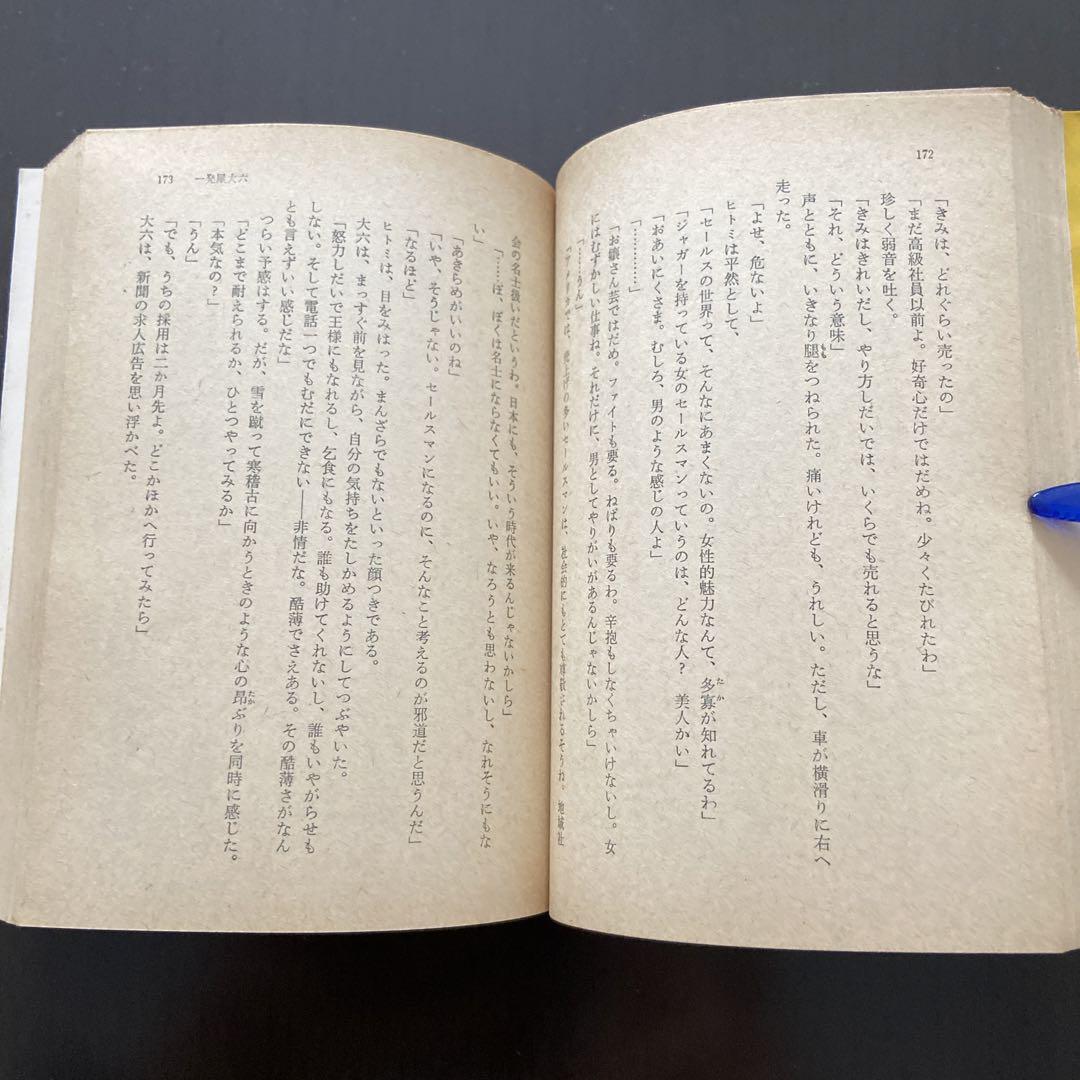 172
「きみは、どれぐらい売ったの」
「まだ高級社員以前よ。好奇心だけではだめね。少々くたびれたわ」
珍しく弱音を吐く。
「きみはきれいだし、やり方しだいでは、いくらでも売れると思うな」
「それ、どういう意味」
声とともに、いきなり腿をつねられた。痛いけれども、うれしい。ただし、車が横滑りに右へ
もも
走った。
「よせ、危ないよ」
ヒトミは平然として、
「セールスの世界って、そんなにあまくないの。女性的魅力なんて、多寡が知れてるわ」
たか
「ジャガーを持っている女のセールスマンっていうのは、どんな人？　美人かい」
「おあいにくさま。むしろ、男のような感じの人よ」
「…………」
「お嬢さん芸ではだめ。ファイトも要る。ねばりも要るわ。辛抱もしなくちゃいけないし。女
にはむずかしい仕事ね。それだけに、男としてやりがいがあるんじゃないかしら」
「……うん」
「アメリカでは、売上げの多いセールスマンは、社会的にもとても尊敬されるそうね。地域社
173　一発屋大六
会の名士扱いだというわ。日本にも、そういう時代が来るんじゃないかしら」
「……ぼ、ぼくは名士にならなくてもいい。いや、なろうとも思わないし、なれそうにもな
い」
「あきらめがいいのね」
「いや、そうじゃない。セールスマンになるのに、そんなこと考えるのが邪道だと思うんだ」
「なるほど」
ヒトミは、目をみはった。まんざらでもないといった顔つきである。
大六は、まっすぐ前を見ながら、自分の気持ちをたしかめるようにしてつぶやいた。
「努力しだいで王様にもなれるし、乞食にもなる。誰も助けてくれないし、誰もいやがらせも
しない。そして電話一つでもむだにできない――非情だな。酷薄でさえある。その酷薄さがなん
とも言えずいい感じだな」
つらい予感はする。だが、雪を蹴って寒稽古に向かうときのような心の昂ぶりを同時に感じた。
たか
「どこまで耐えられるか、ひとつやってみるか」
「本気なの？」
「うん」
「でも、うちの採用は二か月先よ。どこかほかへ行ってみたら」
大六は、新聞の求人広告を思い浮かべた。